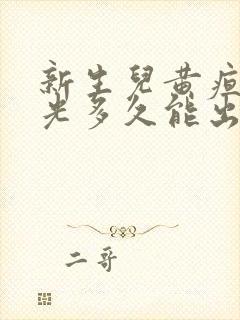 新生兒黃疸
光多久能出
二哥